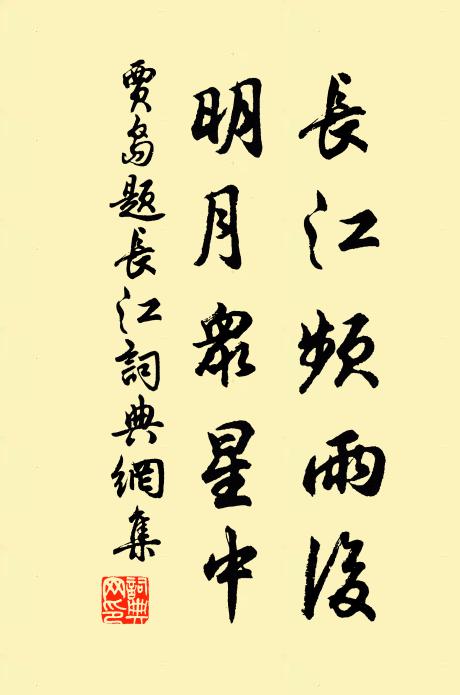 長江頻雨後
明月衆星中
賈島題長江詞典網集
詞典網印